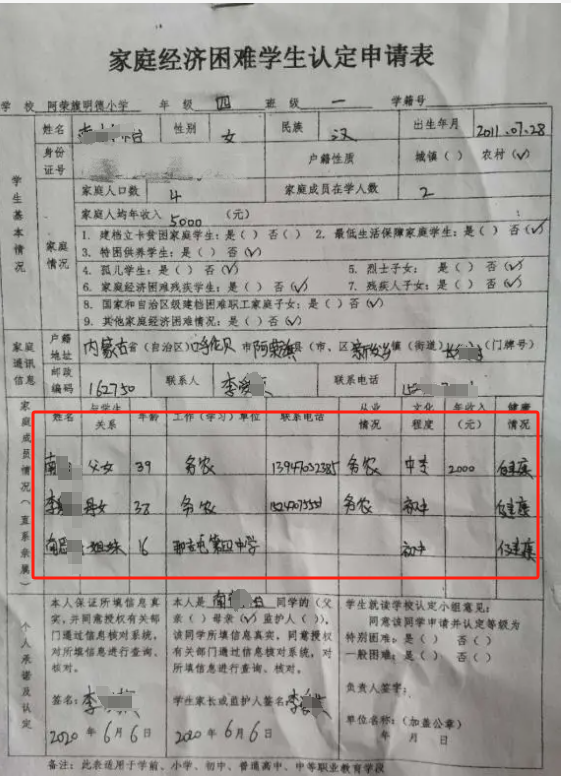 家庭经济困难学生认定申请表
学 校 阿荣旗明德小学 年 级 四 班 级 一 学籍号
姓名 性别 女 民族 汉 出生年月 2011.07.28
身份证号 户籍性质 城镇( ) 农村(√)
学生基本情况
家庭人口数 4 家庭成员在学人数 2
家庭情况
家庭人均年收入 5000 (元)
1. 建档立卡贫困家庭学生：是( ) 否( ) 2. 最低生活保障家庭学生：是( ) 否(√)
3. 特困供养学生：是( ) 否(√)
4. 孤儿学生：是( ) 否(√) 5. 烈士子女： 是( ) 否(√)
6. 家庭经济困难残疾学生：是( ) 否(√) 7. 残疾人子女：是( ) 否(√)
8. 国家和自治区级建档困难职工家庭子女：是( ) 否(√)
9. 其他家庭经济困难情况：是( ) 否(√)
家庭通讯信息
户籍地址 内蒙古省(自治区)呼伦贝市阿荣旗县(市、区 镇(街道) (门牌号)
邮政编码 162750 联系人 李 联系电话
家庭成员情况(直系亲属)
姓名 与学生关系 年龄 工作(学习)单位 联系电话 从业情况 文化程度 年收入(元) 健康情况
南 父女 39 务农 务农 中专 2000 健康
李 母女 38 务农 务农 初中 健康
南 姐妹 16 那吉屯第四中学 初中 健康
个人承诺及认定
本人保证所填信息真实,并同意授权有关部门通过信息核对系统,对所填信息进行查询、核对。
签名：李
2020 年 6 月 6 日
本人是 南 同学的(父亲( )母亲(√)监护人( )),该同学所填信息真实,同意授权有关部门通过信息核对系统,对所填信息进行查询、核对。
学生家长或监护人签名：李
2020 年 6 月 6 日
学生就读学校认定小组意见：
同意该同学申请并认定等级为
特别困难：是( ) 否( )
一般困难：是( ) 否( )
负责人签字：
单位名称：(加盖公章)
年 月 日
备注：此表适用于学前、小学、初中、普通高中、中等职业教育学段